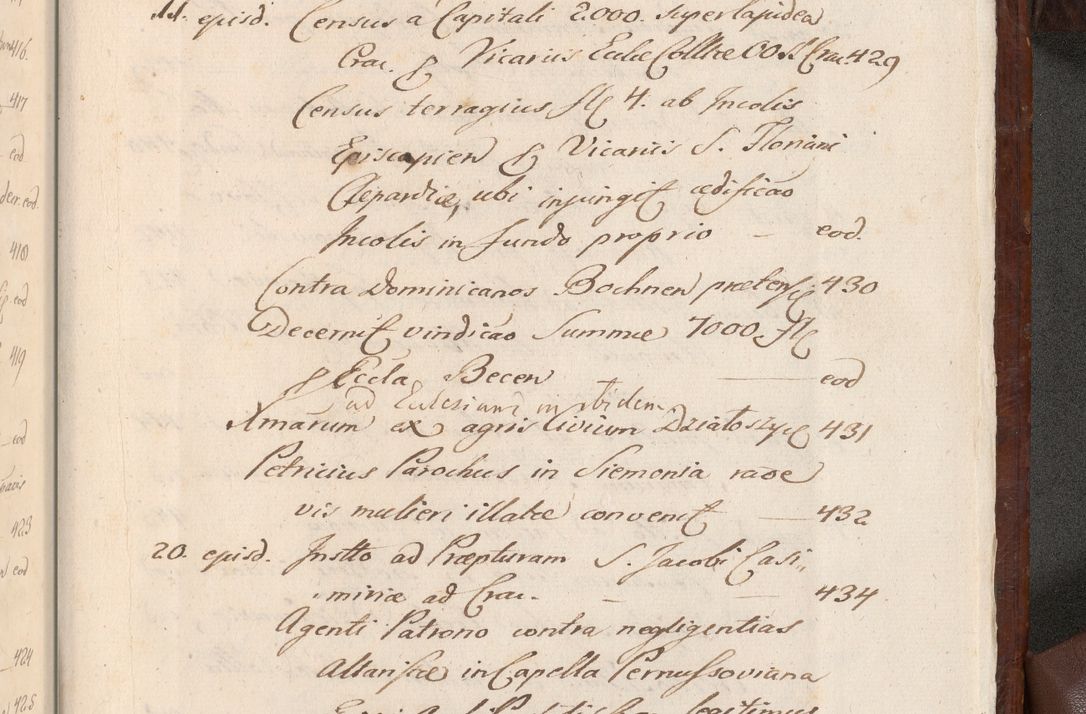 11. ejusd. Census à Capitali 2000. super lapidea
Crac. p Vicariis Eccle Colltae OO. SS. Crac. 429
Census terragius fl 4. ab Incolis
Episcopien p Vicariis S. Floriani
Clepardiae, ubi injungit ædificao
Incolis in fundo proprio – eod.
Contra Dominicanos Bochnen prætens 430
Decernit vindicao Summæ 7000 fl
p Eccla Becen — eod
ad Eclesiam in ibidem
Xmarum ex agris Civium Dziatoszyc 431
Petricius Parochus in Siemonia raoe
vis mulieri illatæ convenit — 432
20. ejusd. Instto ad Præpturam S. Jacobi Casi„
miriæ ad Crac. – — 434
Agenti Patrono contra negligentias
Altaristæ in Capella Pernussoviana
legitimus
416.
417
eod
eod.
418
eod
419
eod
423
eod
424
425